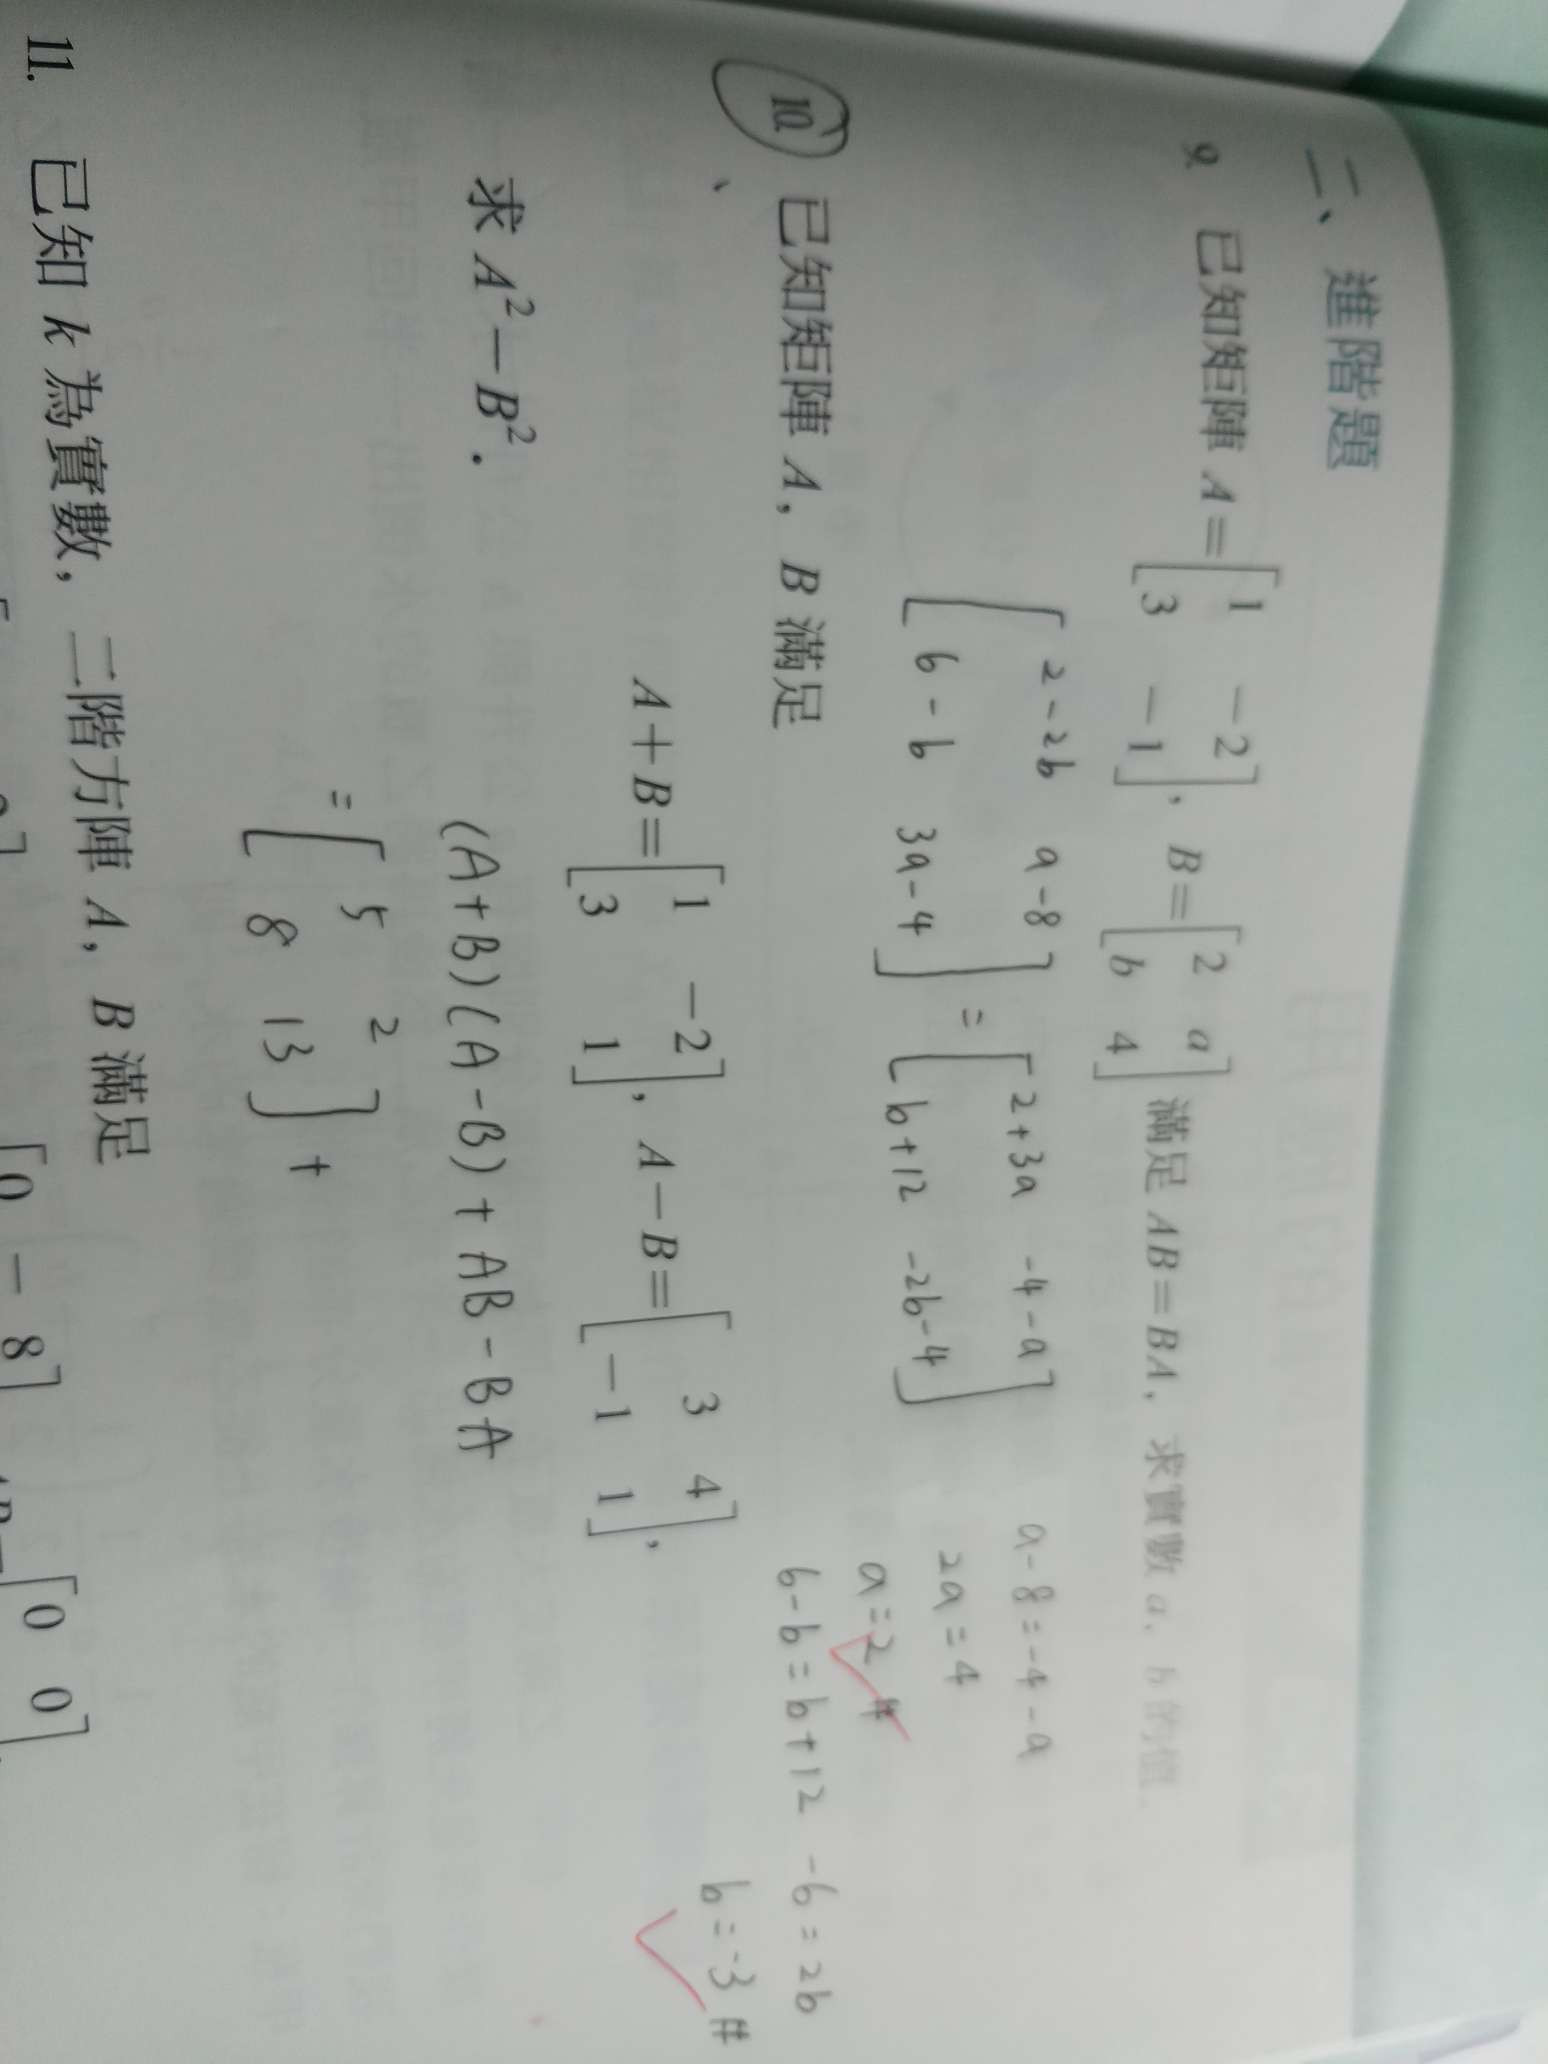 二、進階題
9. 已知矩陣 A=[1 -2
3 -1], B=[2 a
b 4] 滿足 AB=BA, 求實數 a, b 的值.
[2-2b a-8
6-b 3a-4] = [2+3a -4-a
b+12 -2b-4]
a-8=-4-a
2a=4
a=2 #
6-b=b+12 -6=2b
b=-3 #
10. 已知矩陣 A, B 滿足
A+B=[1 -2
3 1], A-B=[3 4
-1 1],
求 A²-B².
(A+B)(A-B)+AB-BA
=[5 2
8 13]+
11. 已知 k 為實數, 二階方陣 A, B 滿足
0 -8]
[0 0]